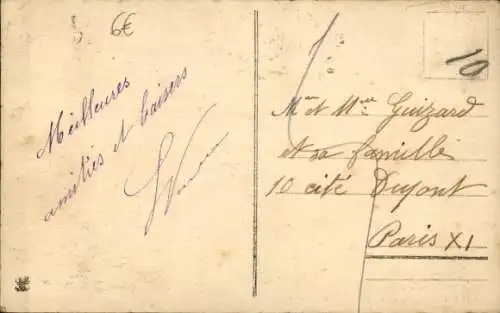 6€
Meilleures
amitiés et baisers
10
Mr et Mme Guizard
et sa famille
10 cité Dupont
Paris XI